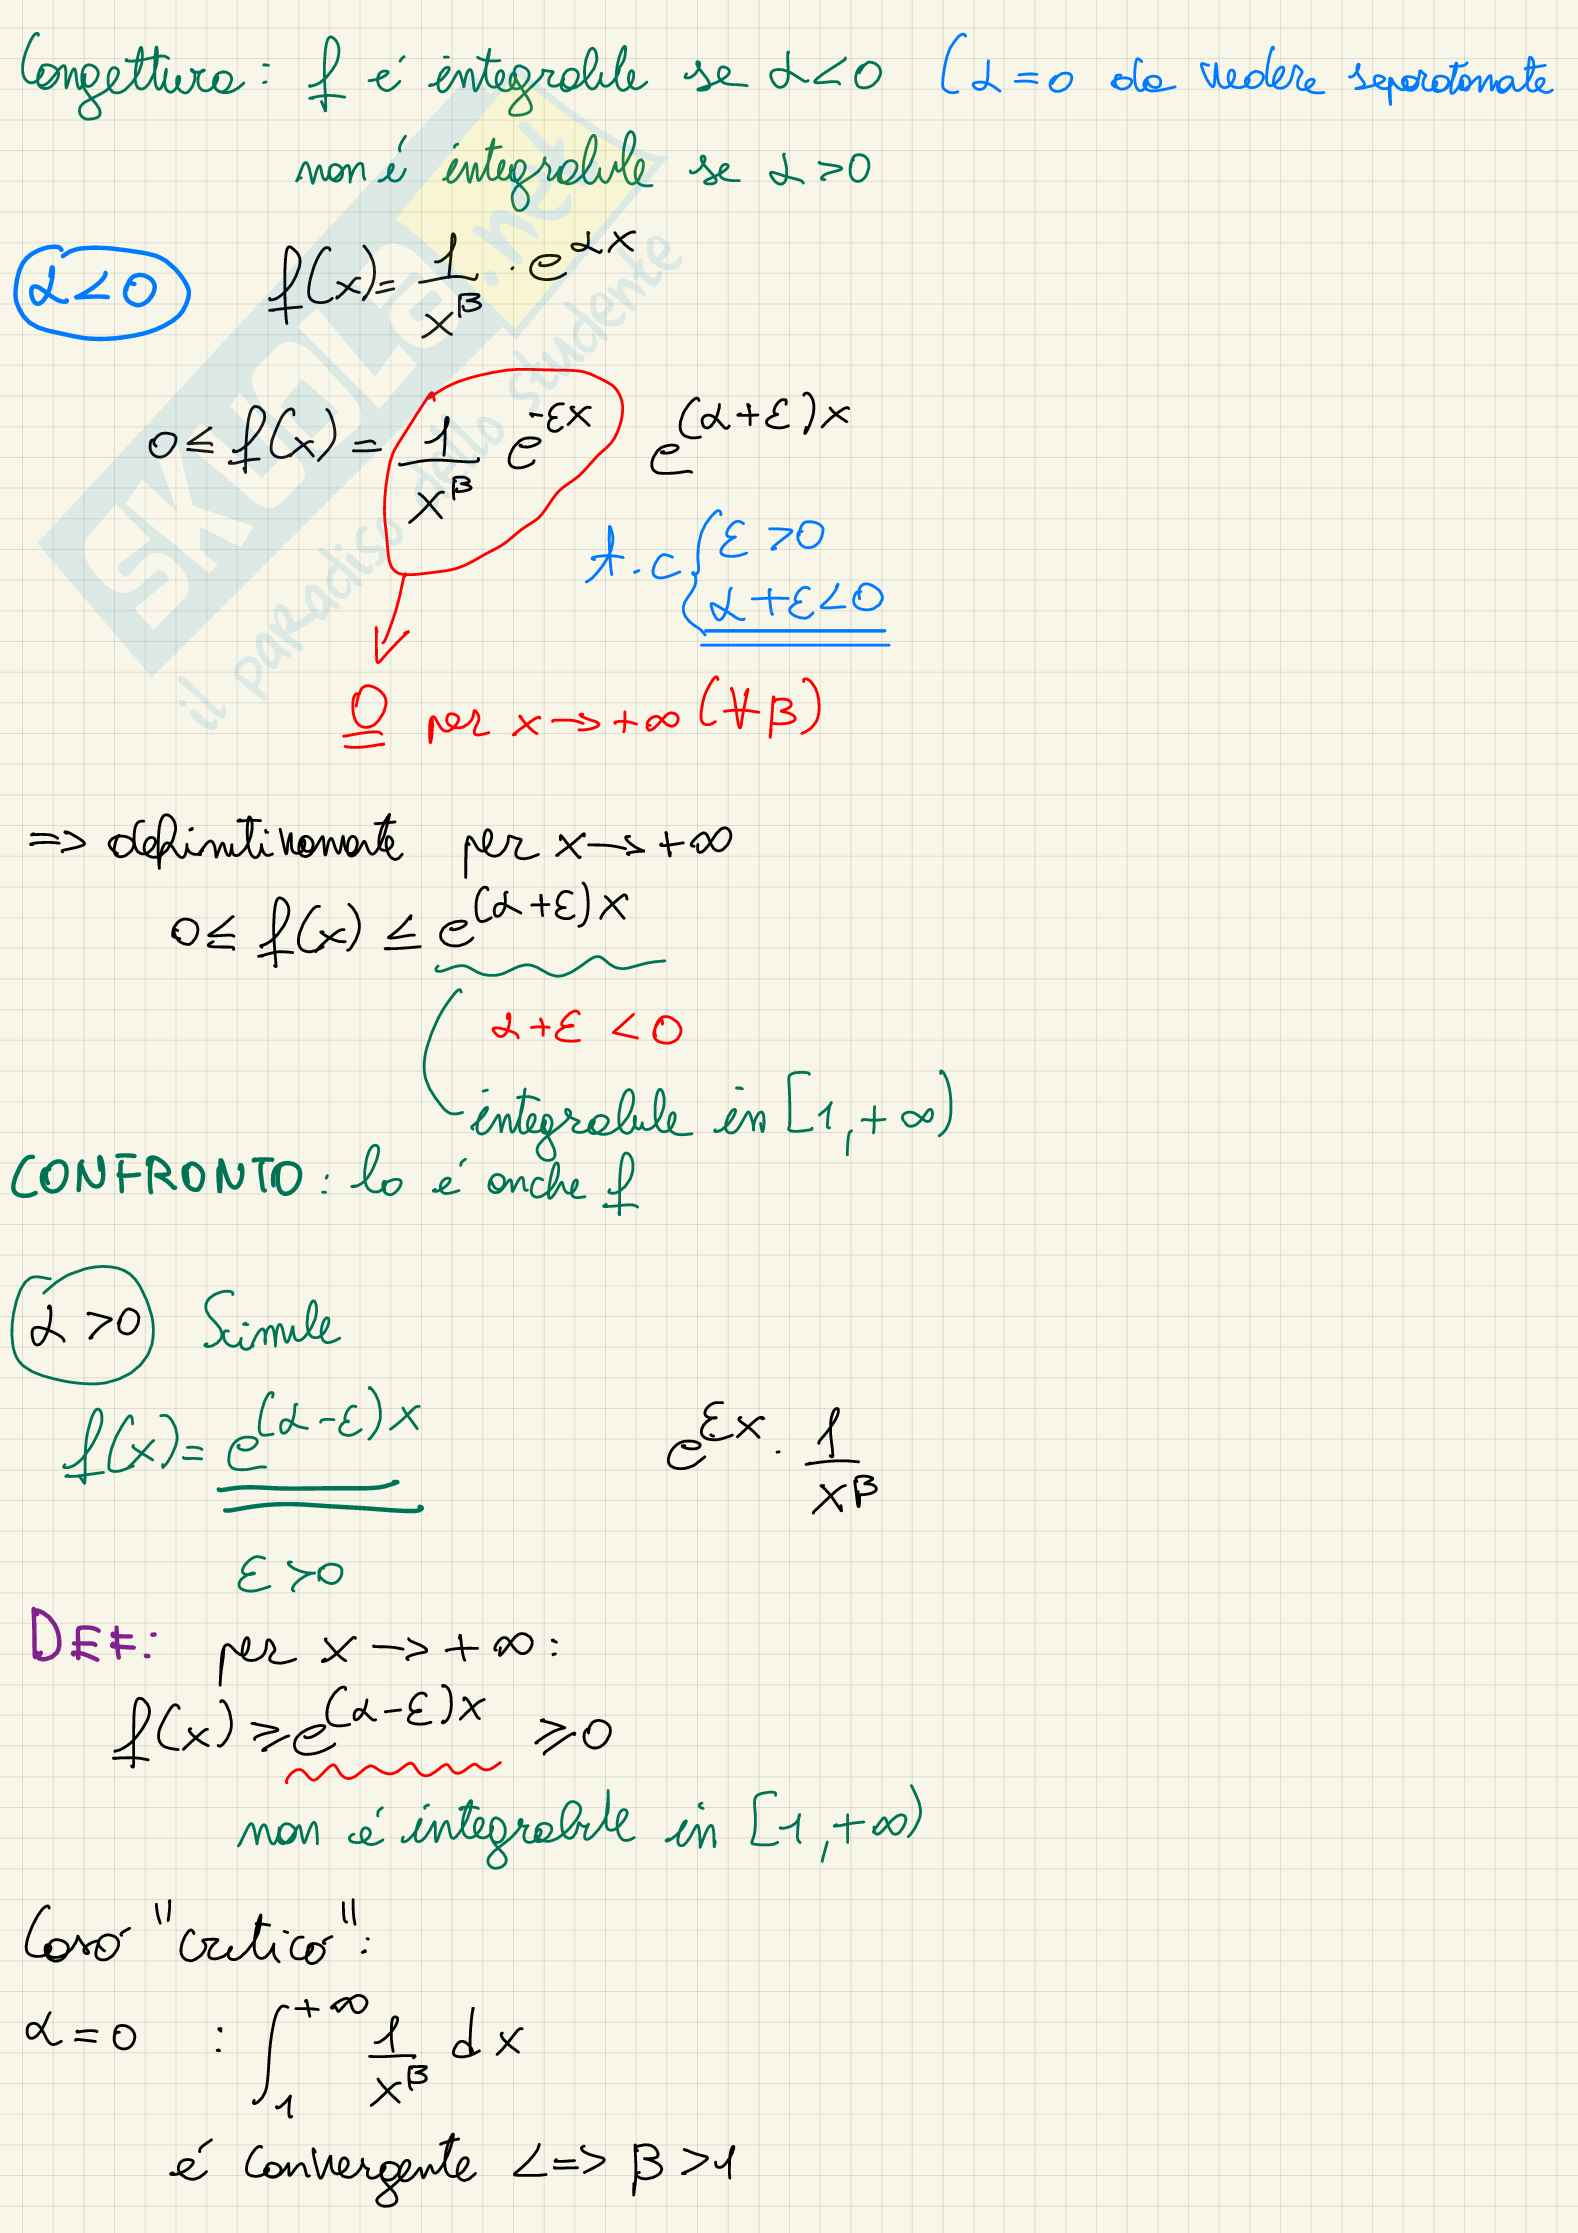 Congettura: f é integrabile se α<0 (α=0 da vedere separatamente
non é integrabile se α>0
α<0 f(x)= 1/x^β · e^(αx)
0≤ f(x) = 1/x^β e^(-εx) e^((α+ε)x)
t.c { ε>0
α+ε<0
0 per x→+∞ (∀β)
=> definitivamente per x→+∞
0≤ f(x) ≤ e^((α+ε)x)
α+ε <0
integrabile in [1,+∞)
CONFRONTO: lo é anche f
α>0 Simile
f(x)= e^((α-ε)x) e^(εx) · 1/x^β
ε>0
DEF: per x→+∞:
f(x) ≥ e^((α-ε)x) ≥0
non é integrabile in [1,+∞)
Caso "critico":
α=0 : ∫_1^(+∞) 1/x^β dx
é convergente <=> β>1
SKUOLA.net
il paradiso dello studente